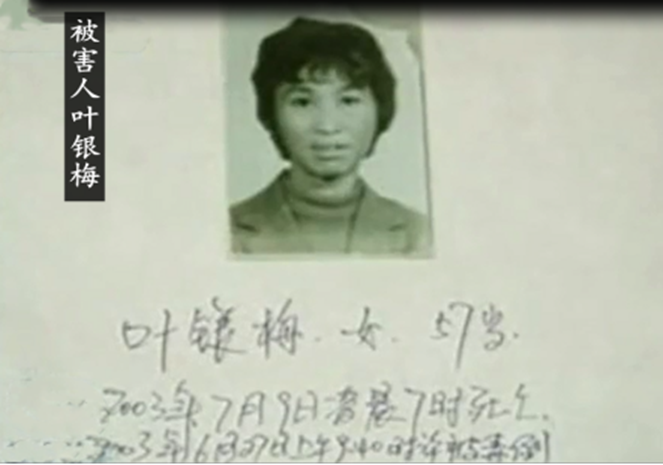 被害人叶银梅
叶银梅、女、57岁.
2003年7月9日凌晨7时死亡.
2003年6月27日上午9:40时许被害倒